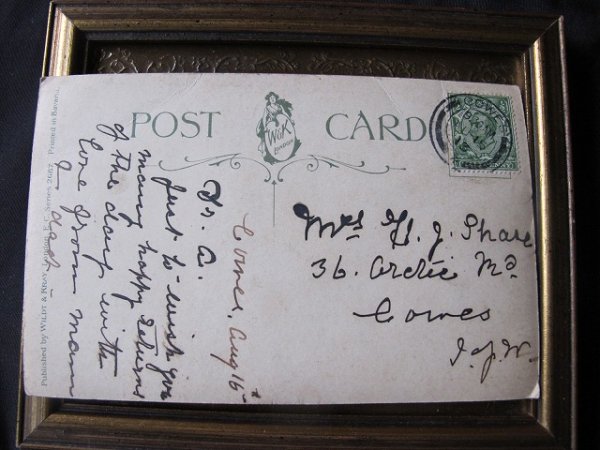 POST CARD
W&K
LONDON
COWES
Cowes, Aug 16th
Dr. A.
Just to wish you
many happy returns
of the day with
love from Mam
& dad
Mrs H. J. Share
36. Arctic Rd
Cowes
I.O.W.
Published by WILDT & KRAY, London, E.C. Series 2687. Printed in Bavaria.